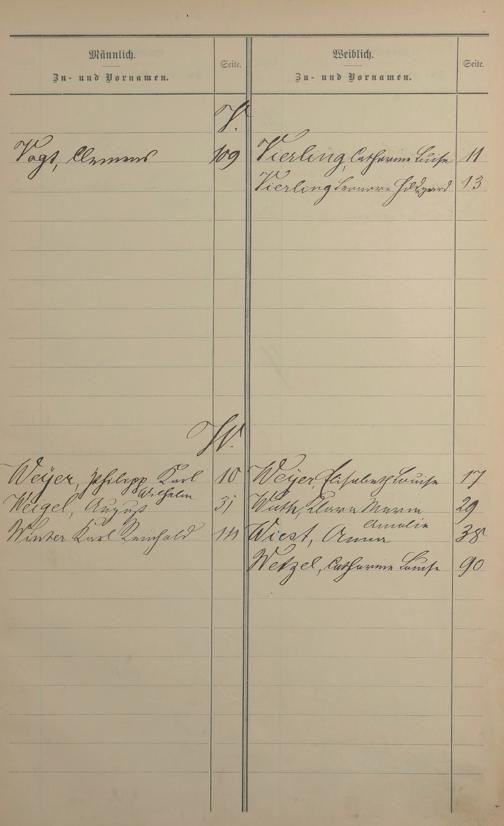 Männlich.
Zu- und Vornamen.
Seite.
Weiblich.
Zu- und Vornamen.
Seite.
V.
Vogt, Clemens 109
Vierling, Catharine Luise 11
Vierling Leonore Hildegard 13
W.
Weyer, Philipp Karl 10
Wilhelm
Weigel, August 31
Winter Karl Reinhold
Weyer, Elisabeth Louise 17
Klara Maria 29
Amalie
Wiest, Anna 38
Wetzel, Catharine Louise 90